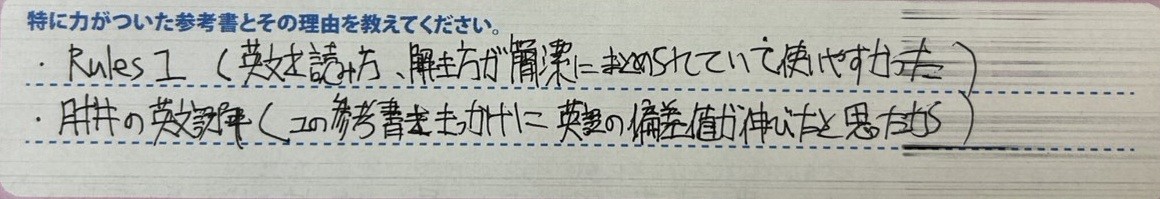 特に力がついた参考書とその理由を教えてください。
・Rules 1 (英文を読み方、解き方が簡潔にまとめられていて使いやすかった)
・肘井の英文読解(この参考書をきっかけに英語の偏差値が伸びたと思ったから)